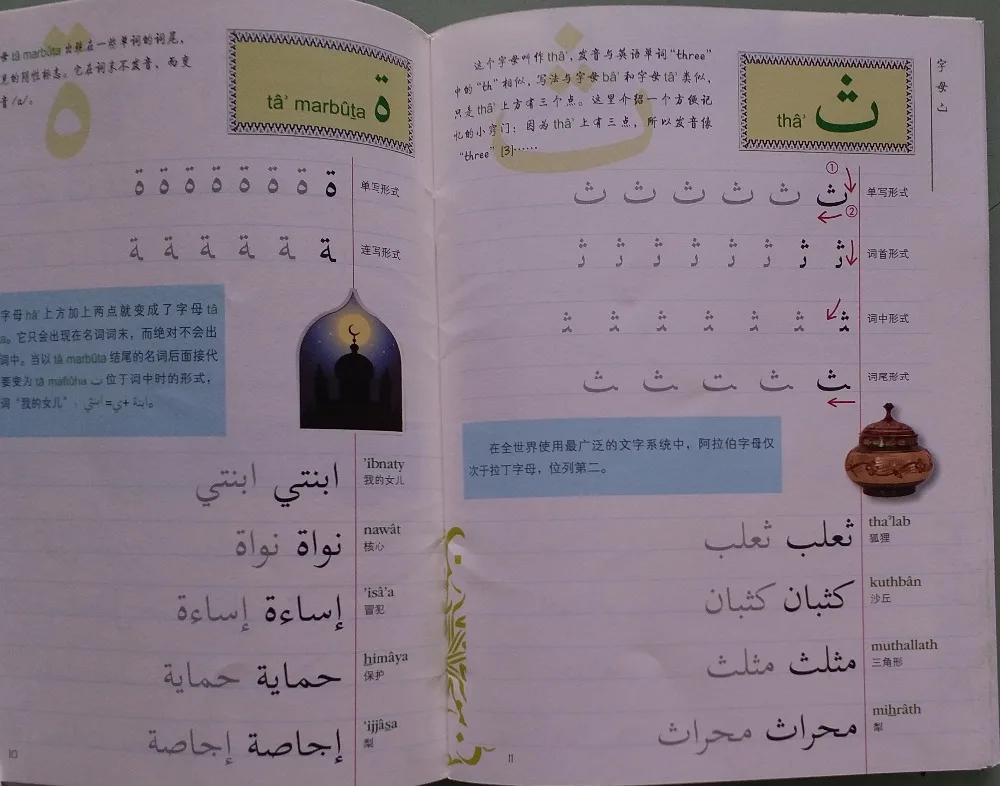 母 tâ marbûta 出现在一些单词的词尾，
见的阴性标志。它在词末不发音，而变
音 /a/。
ة
tâ’ marbûta
ة ة ة ة ة ة ة ة
单写形式
ـة ـة ـة ـة ـة ـة
连写形式
字母 hâ’ 上方加上两点就变成了字母 tâ
a。它只会出现在名词词末，而绝对不会出
词中。当以 tâ marbûta 结尾的名词后面接代
要变为 tâ maftûha ت 位于词中时的形式，
词“我的女儿”，ابنة +ي= ابنتي。
ابنتي ابنتي
’ibnaty
我的女儿
نواة نواة
nawât
核心
إساءة إساءة
’isâ’a
冒犯
حماية حماية
himâya
保护
إجاصة إجاصة
’ijjâsa
梨
10
这个字母叫作 thâ’，发音与英语单词“three”
中的“th”相似，写法与字母 bâ’ 和字母 tâ’ 类似，
只是 thâ’ 上方有三个点。这里介绍一个方便记
忆的小窍门：因为 thâ’ 上有三点，所以发音像
“three” [3]……
ث
thâ’
字母
ث ث ث ث ث ث
① ②
单写形式
ثـ ثـ ثـ ثـ ثـ ثـ ثـ ثـ
词首形式
ـثـ ـثـ ـثـ ـثـ ـثـ ـثـ ـثـ
词中形式
ـث ـث ـت ـث ـث
词尾形式
在全世界使用最广泛的文字系统中，阿拉伯字母仅
次于拉丁字母，位列第二。
ثعلب ثعلب
tha‘lab
狐狸
كثبان كثبان
kuthbân
沙丘
مثلث مثلث
muthallath
三角形
محراث محراث
mihrâth
犁
11